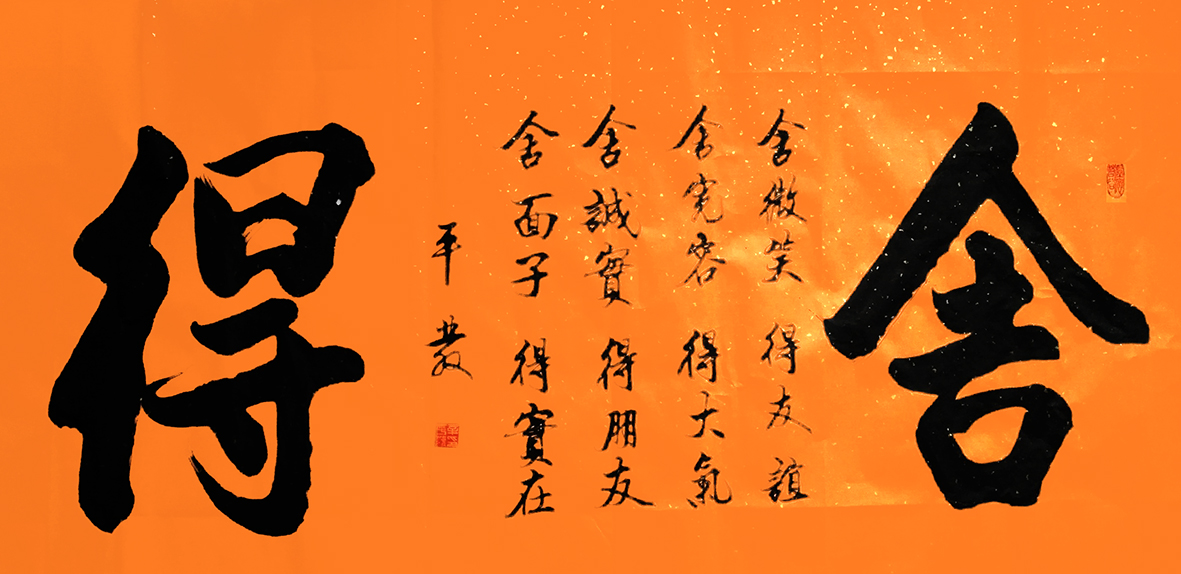 舍
舍微笑 得友誼
舍宽容 得大氣
舍誠實 得朋友
舍面子 得實在
平
得